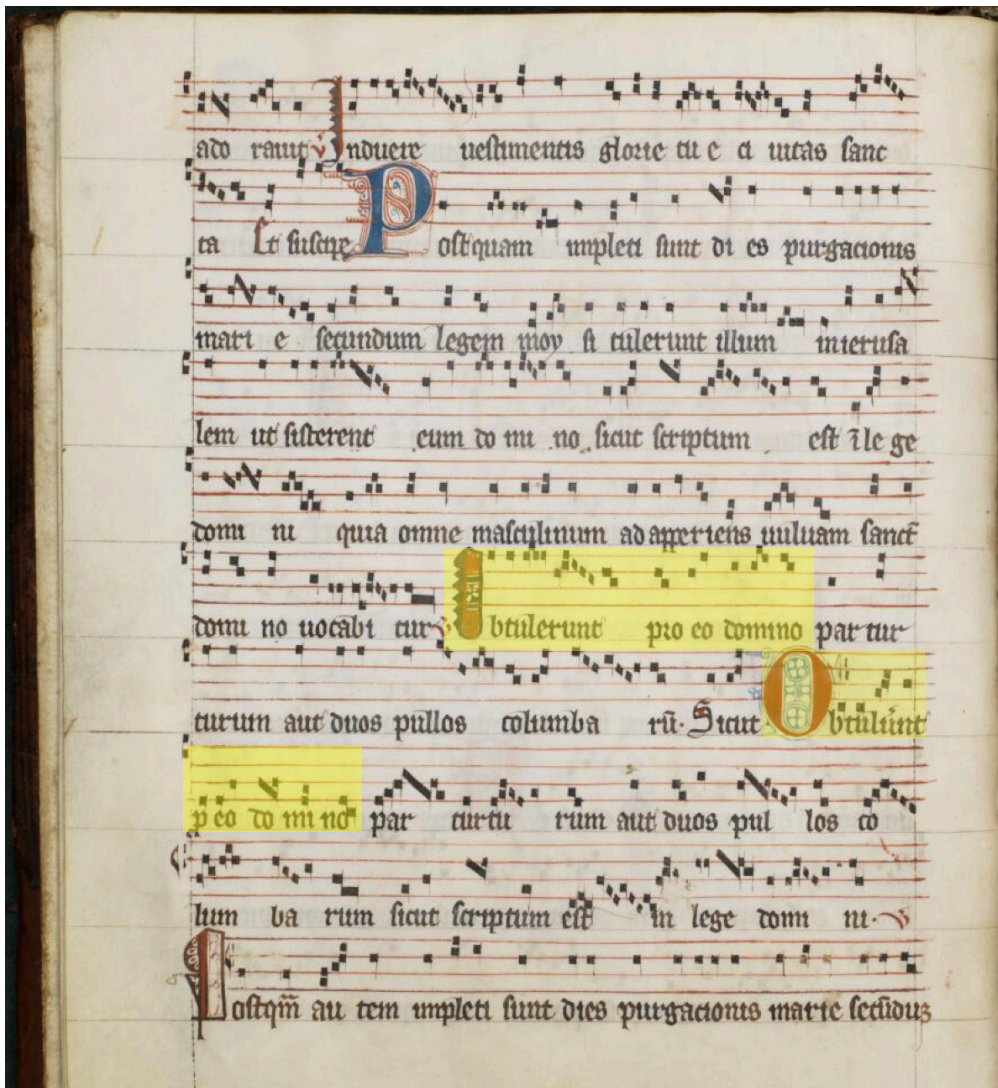 ado rauit ℣ Induere uestimentis glorie tu e ci uitas sanc
ta Et suscipe Postquam impleti sunt di es purgacionis
mari e secundum legem moy si tulerunt illum in ierusa
lem ut sisterent eum do mi no sicut scriptum est ī le ge
domi ni quia omne masculinum ad apperiens uuluam sanct̄
domi no uocabi tur ℣ Obtulerunt pro eo domino par tur
turum aut duos pullos columba rū· Sicut Obtulūnt
ꝓ eo do mi no par turtu rum aut duos pul los co
lum ba rum sicut scriptum est in lege domi ni· ℣
Postqm̄ au tem impleti sunt dies purgacionis marie secūduꝫ